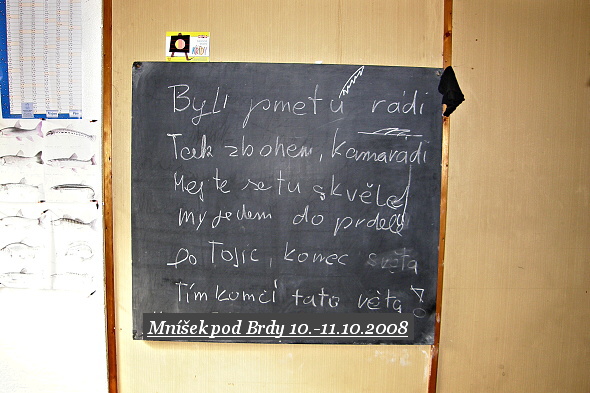 Byli jsme tu rádi
Tak zbohem, kamarádi
Mejte se tu skvěle
my jedem do prdele
po Tojíc, konec světa
Tím končí tato věta!
Mníšek pod Brdy 10.-11.10.2008